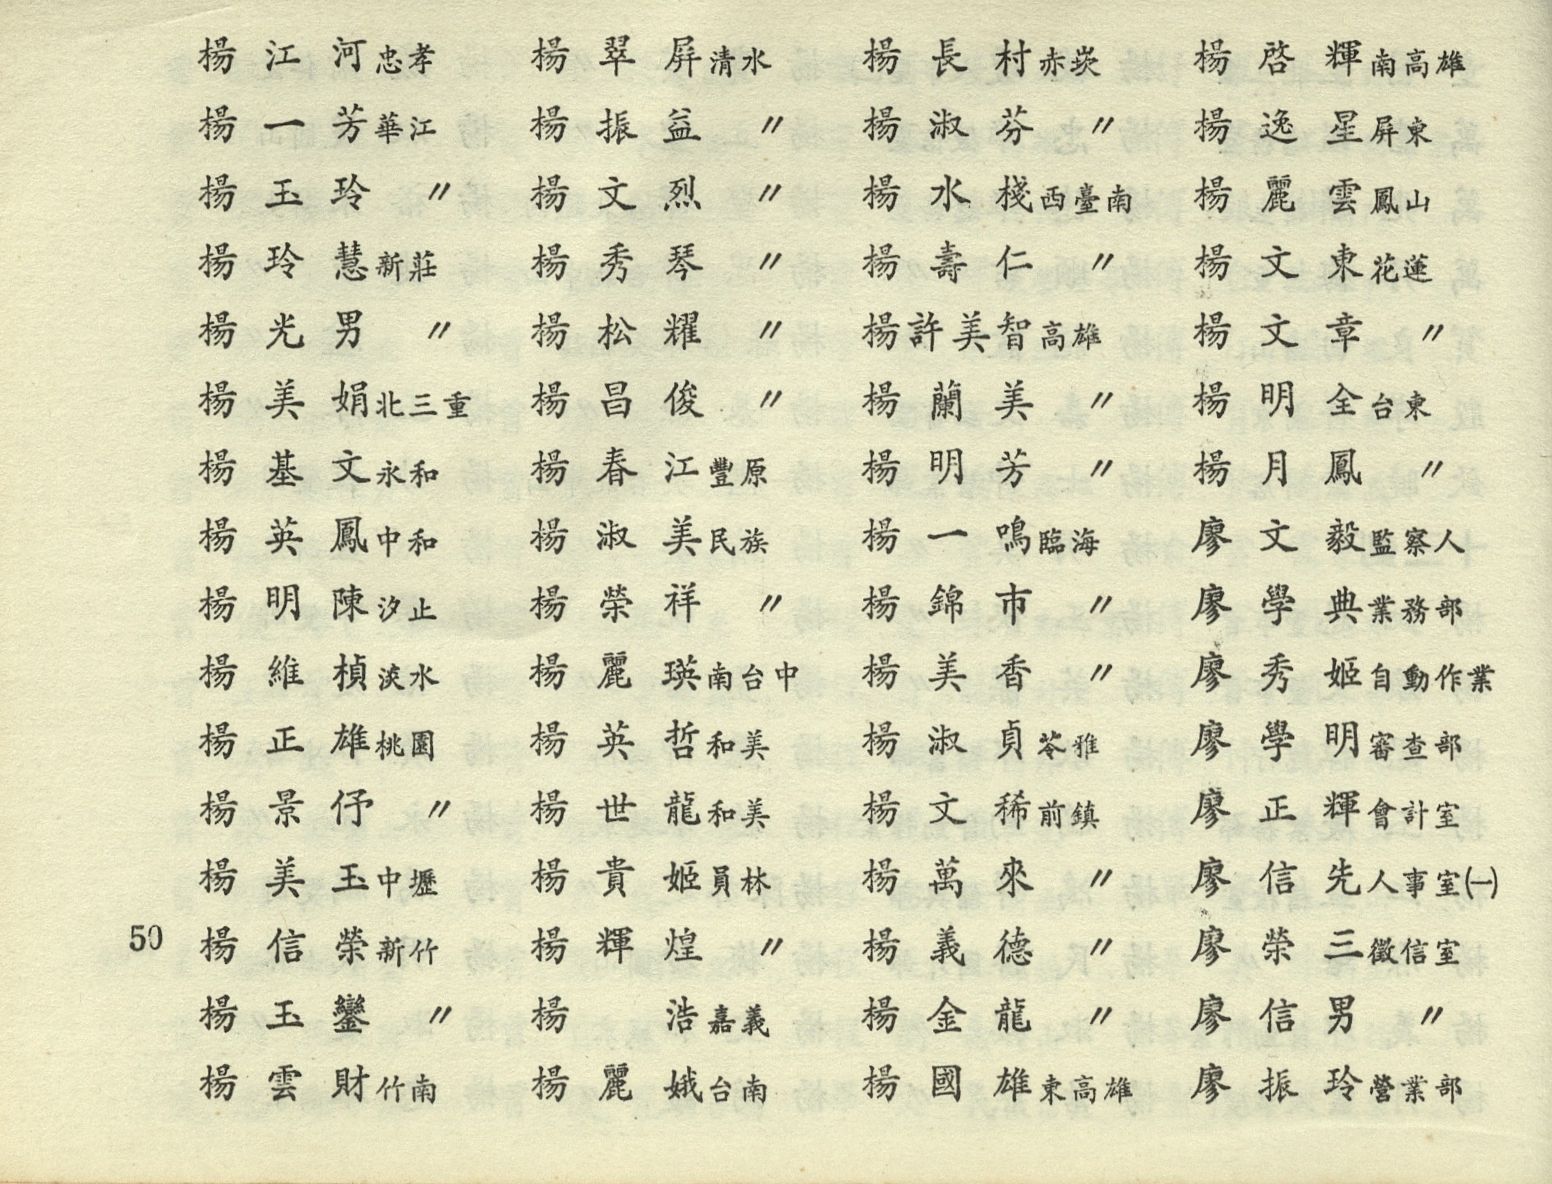 楊江河忠孝 楊翠屏清水 楊長村赤崁 楊啓輝南高雄
楊一芳華江 楊振益〃 楊淑芬〃 楊逸星屏東
楊玉玲〃 楊文烈〃 楊水棧西臺南 楊麗雲鳳山
楊玲慧新莊 楊秀琴〃 楊壽仁〃 楊文東花蓮
楊光男〃 楊松耀〃 楊許美智高雄 楊文章〃
楊美娟北三重 楊昌俊〃 楊蘭美〃 楊明全台東
楊基文永和 楊春江豐原 楊明芳〃 楊月鳳〃
楊英鳳中和 楊淑美民族 楊一鳴臨海 廖文毅監察人
楊明陳汐止 楊榮祥〃 楊錦市〃 廖學典業務部
楊維楨淡水 楊麗瑛南台中 楊美香〃 廖秀姬自動作業
楊正雄桃園 楊英哲和美 楊淑貞苓雅 廖學明審查部
楊景伃〃 楊世龍和美 楊文稀前鎮 廖正輝會計室
楊美玉中壢 楊貴姬員林 楊萬來〃 廖信先人事室㈠
50 楊信榮新竹 楊輝煌〃 楊義德〃 廖榮三徵信室
楊玉鑾〃 楊浩嘉義 楊金龍〃 廖信男〃
楊雲財竹南 楊麗娥台南 楊國雄東高雄 廖振玲營業部